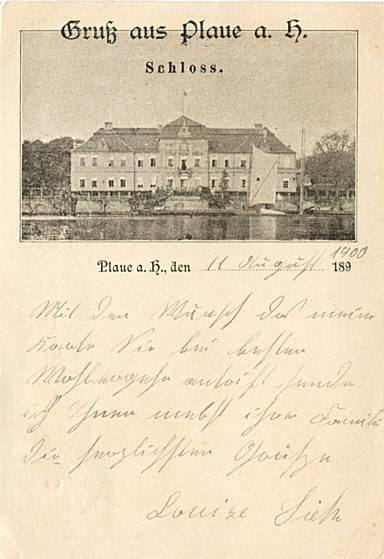 Gruß aus Plaue a. H.
Schloss.
Plaue a. H., den 11 August 189 1900
Mit den Wunsch das meine
Karte Sie bei besten
Wohlergehn antrift sende
ich Ihnen nebst ihre Familie
die herzlichsten Grüße
Louise